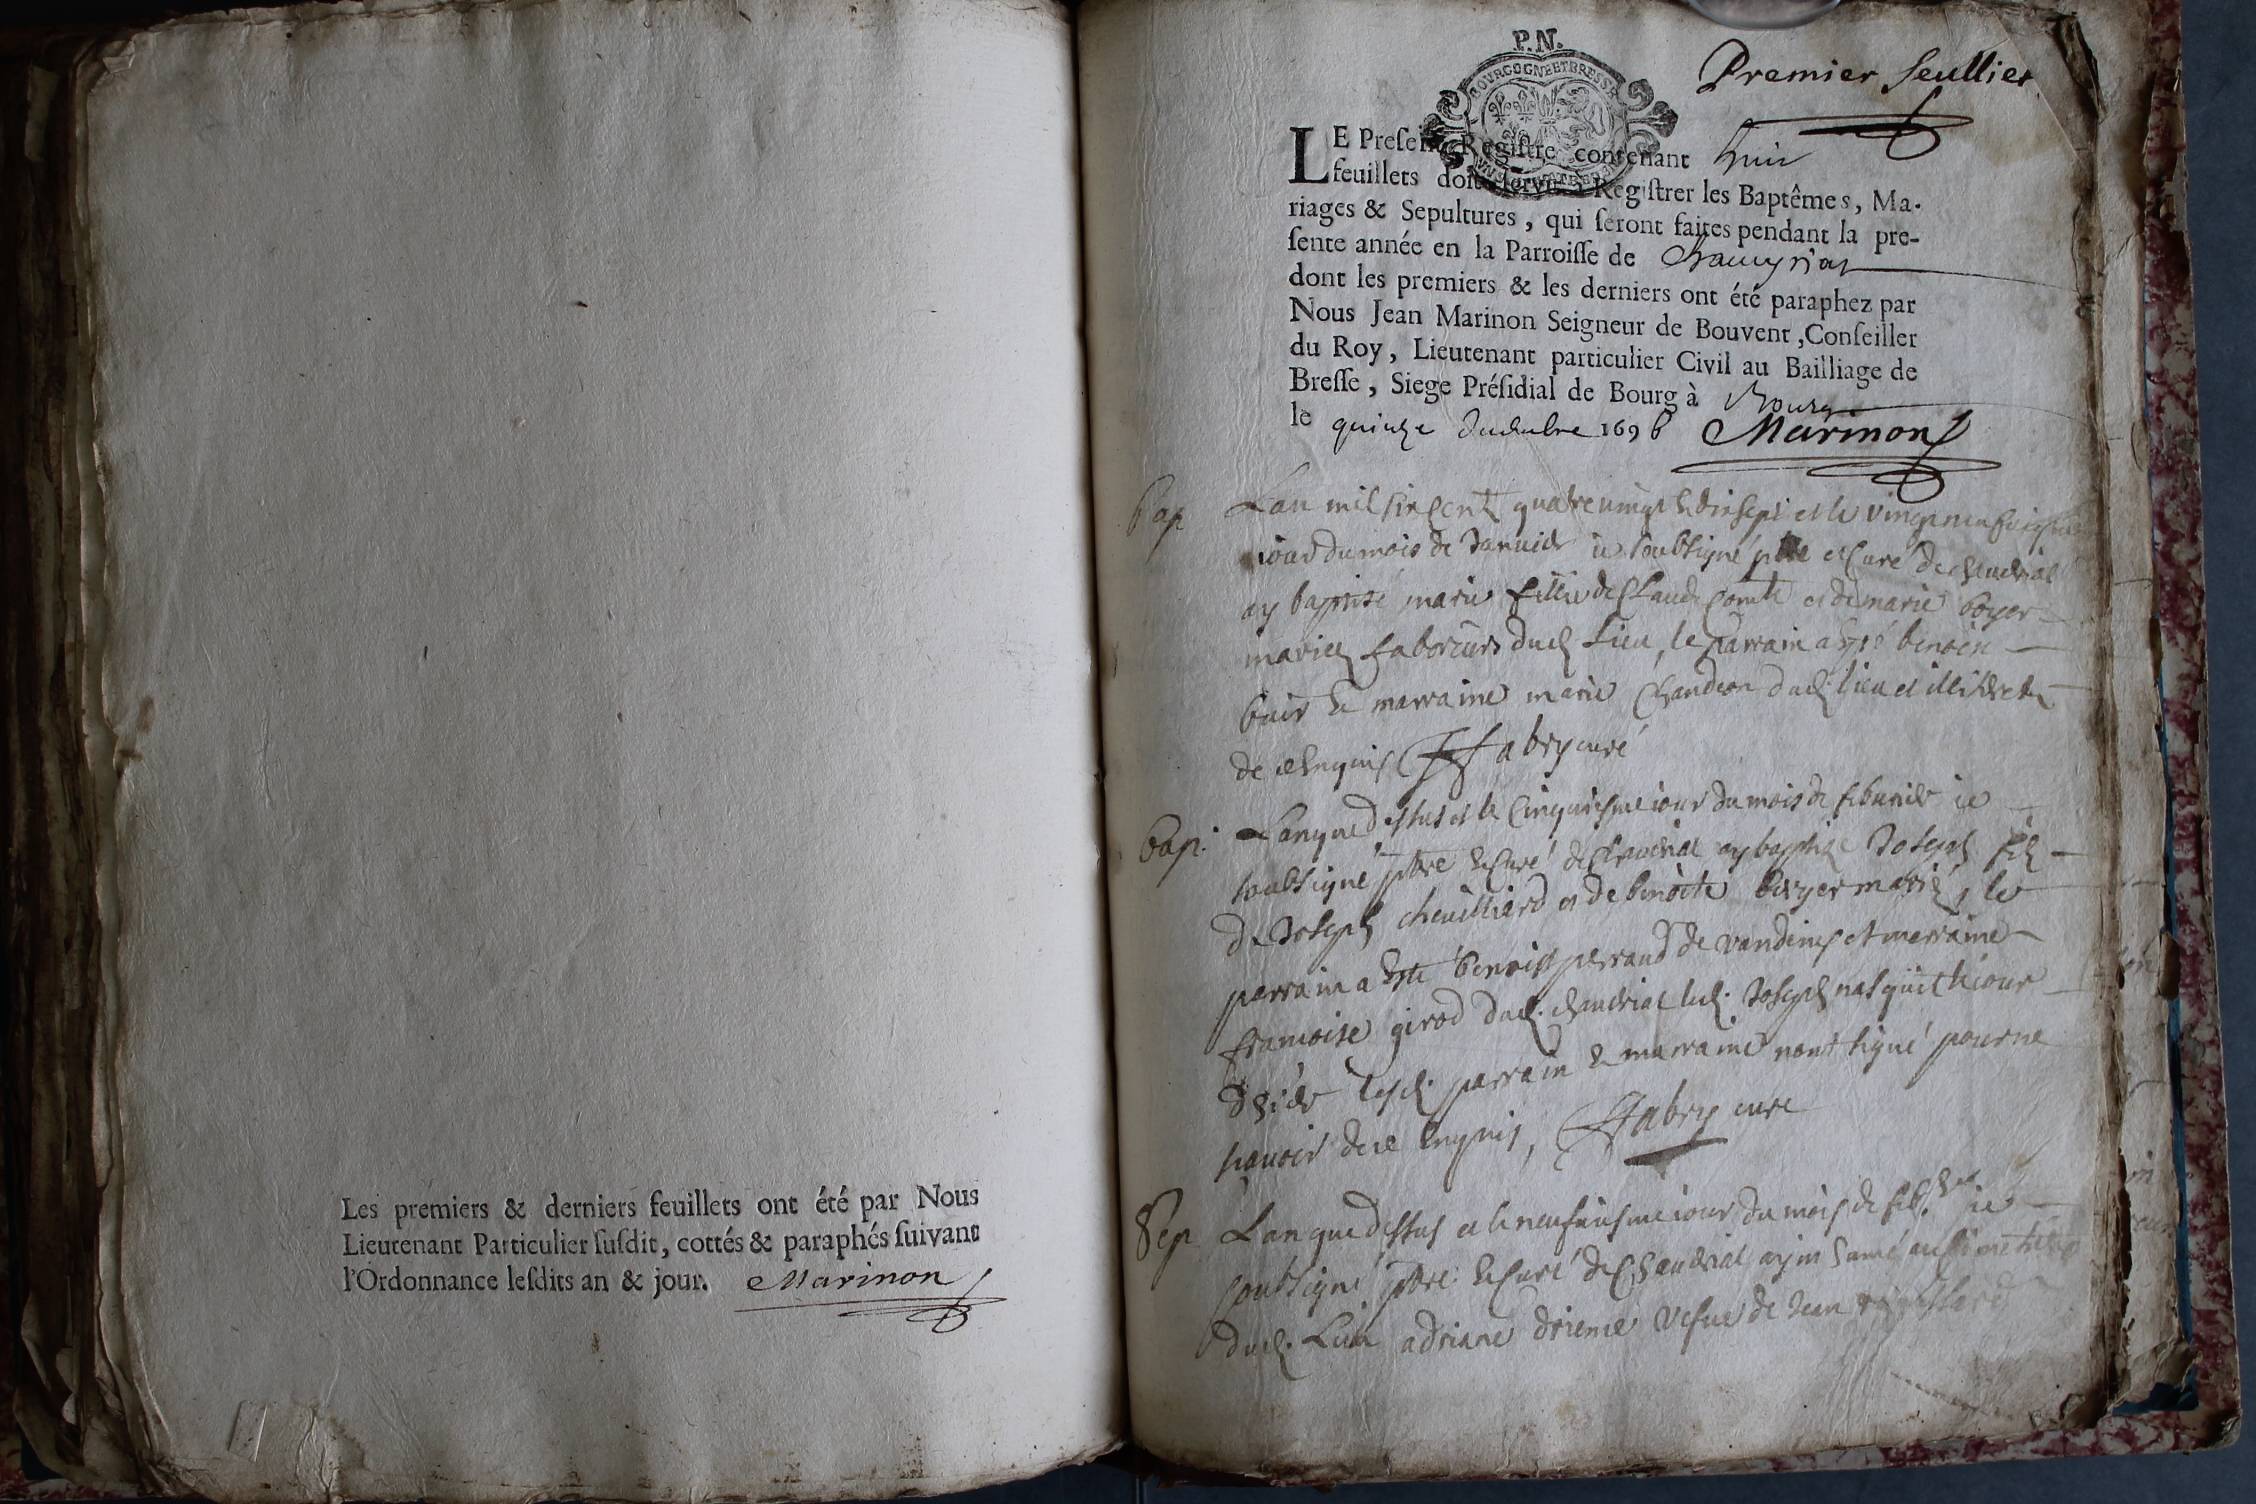 Les premiers & derniers feuillets ont été par Nous
Lieutenant Particulier ſuſdit, cottés & paraphés ſuivant
l'Ordonnance leſdits an & jour. Marinon
P.N.
BOURGOGNE ET BRESSE
Premier feullier
LE Preſent Regiſtre contenant huit
feuillets doit ſervir à Regiſtrer les Baptêmes, Ma-
riages & Sepultures, qui ſeront faites pendant la pre-
ſente année en la Parroiſſe de Chaveyriat
dont les premiers & les derniers ont été paraphez par
Nous Jean Marinon Seigneur de Bouvent, Conſeiller
du Roy, Lieutenant particulier Civil au Bailliage de
Breſſe, Siege Préſidial de Bourg à Bourg
le quinze 1696 Marinon
bap Lan mil six cent quatre vingt & dix sept et le vingt neufviesme
jour du mois de Janvier ie soubsigné pbre et Curé de
ay baptisé marie fillie de Claude Comte et de marie boyer
mariez laboreurs dud lieu, le parrain a esté benoit
buir & marraine marie Chandeon dud. lieu et illitérés
de ce enquis Fabry curé
bap. Lan que dessus et le Cinquiesme iour du mois de febvrier ie
soubsigné pbre & Curé de ay baptisé Joseph filz
de Joseph chevilliard et de benoite boyer mariés, le
parrain a esté benoist perraud de vandeins et marraine
francoise girod dud. led. Joseph nasquit le iour
d'hier lesd. parrain & marraine nont signé pour ne
scavoir de ce enquis, Fabry curé
Sep Lan que dessus et le neufviesme iour du mois de feb. ie
soubsigné pbre & Curé de ay inhumé au simetiere
dud. Lieu adriane vefve de Jean